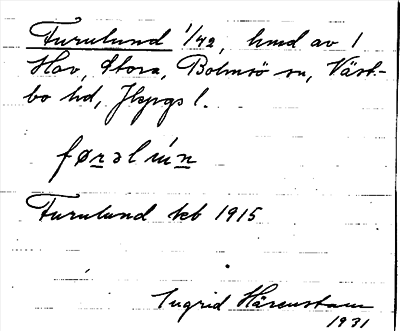 Furulund 1/42, hmd av 1
Hov, Stora, Bolmsö sn, Väst-
bo hd, Jkpgs l.
førəlún
Furulund kb 1915
Ingrid Härenstam
1931